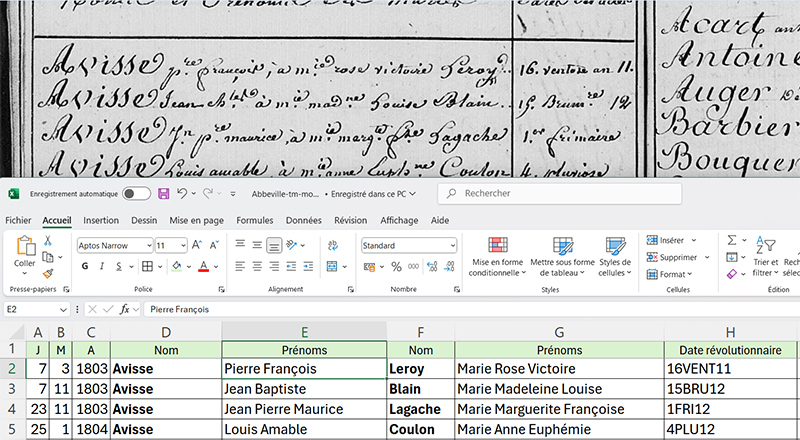 Noms et Prénoms des Maris
Dates des actes
Avisse pre françois, a mie rose victoire Leroy.. 16. ventose an 11.
Avisse Jean Bte à mie madne Louise Blain.. 15. Brumre 12
Avisse Jn pre maurice, à mie margte fse Lagache 1.er frimaire
Avisse Louis amable à mie anne Euphne Coulon 4. pluviose
Acart an
Antoine
Auger
Barbier
Bouquer
Enregistrement automatique Abbeville-tm-mo... • Enregistré dans ce PC Rechercher
Fichier Accueil Insertion Dessin Mise en page Formules Données Révision Affichage Aide
Coller Aptos Narrow 11 A A Standard Mise en forme conditionnelle Mettre sous forme de tableau Styles de cellules Insérer Supprimer Format Trier et filtrer Rech sélec
G I S A % 000
Presse-papiers Police Alignement Nombre Styles Cellules Édition
E2 fx Pierre François
A B C D E F G H
1 J M A Nom Prénoms Nom Prénoms Date révolutionnaire
2 7 3 1803 Avisse Pierre François Leroy Marie Rose Victoire 16VENT11
3 7 11 1803 Avisse Jean Baptiste Blain Marie Madeleine Louise 15BRU12
4 23 11 1803 Avisse Jean Pierre Maurice Lagache Marie Marguerite Françoise 1FRI12
5 25 1 1804 Avisse Louis Amable Coulon Marie Anne Euphémie 4PLU12